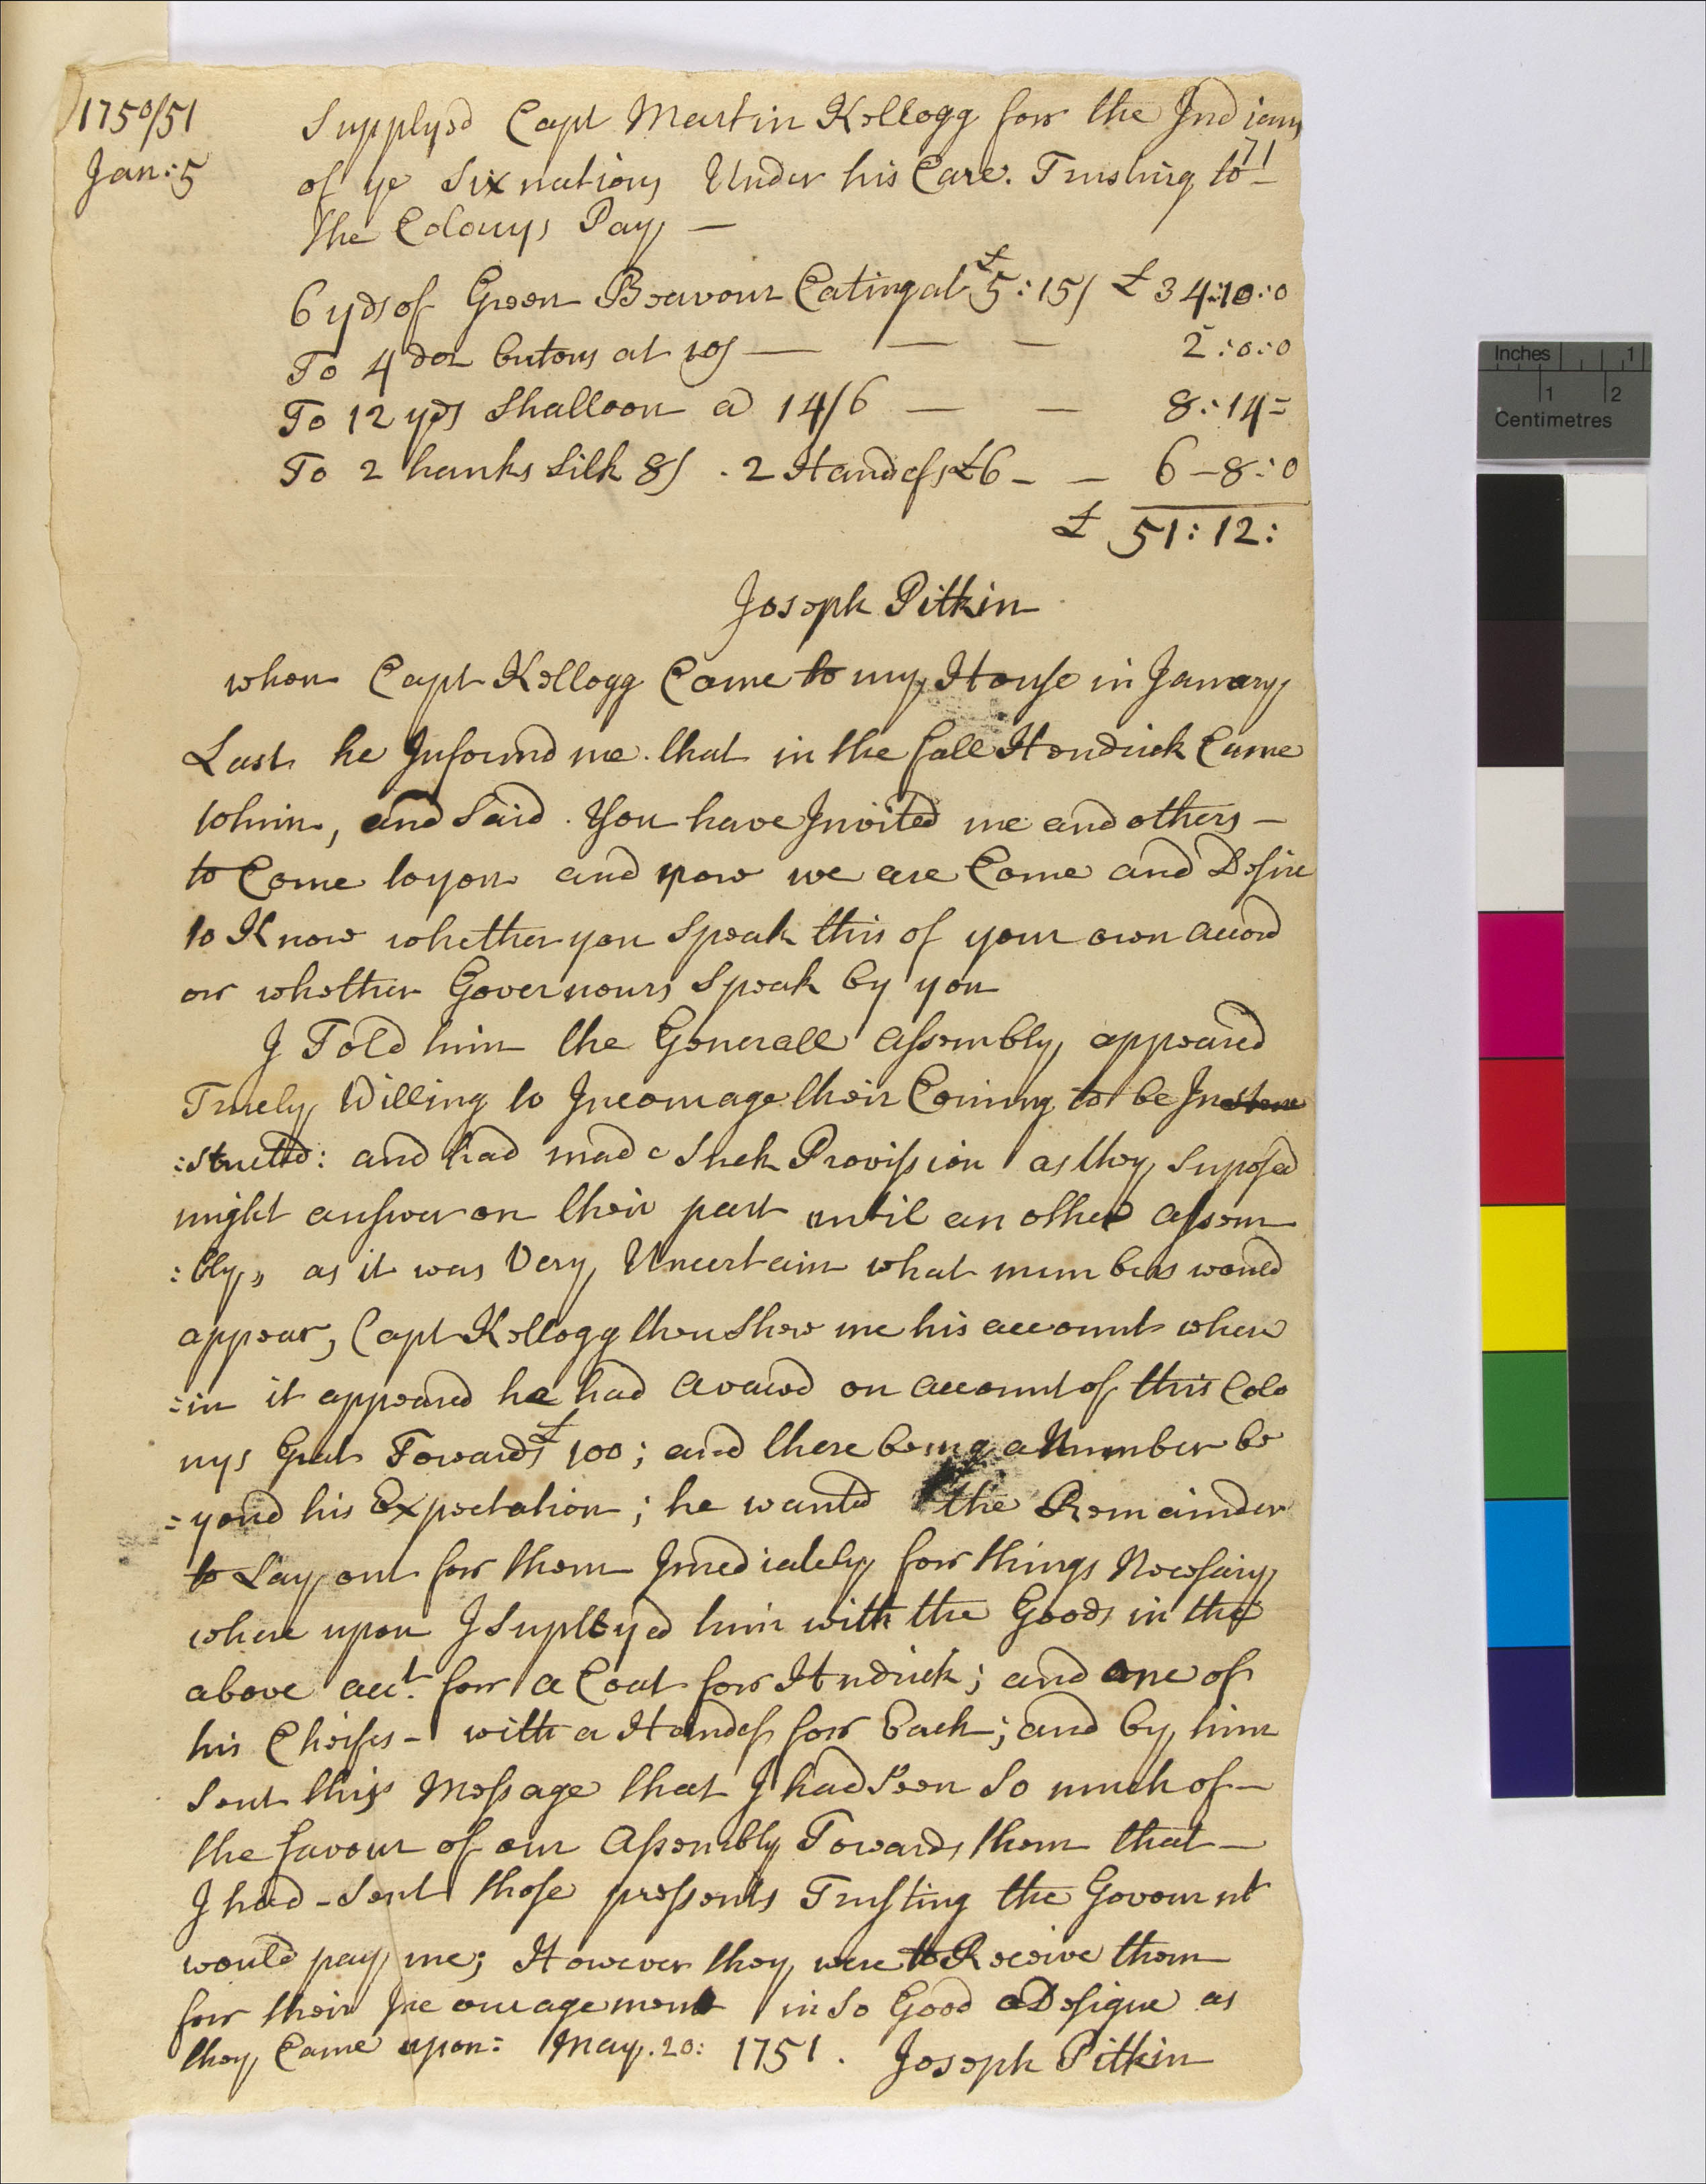 1750/51
Jan: 5
Supplyed Capt Martin Kellogg for the Indians
71
of ye Six nations Under his Care. Trusting to -
the Colonys Pay -
6 yds of Green Beavour Coating at £5:15/ £34:10:0
To 4 doz butons at 10/ — — — 2:0:0
To 12 yds Shalloon a 14/6 — — 8:14=
To 2 hanks Silk 8/ . 2 Handcfs £6 - - 6-8:0
£ 51:12:
Joseph Pitkin
when Capt Kellogg Came to my House in January
Last he Informd me. that in the fall Hendrick Came
tohim, and Said. You have Invited me and others -
to Come toyou and now we are Come and Desire
to Know whether you Speak this of your own accord
or whether Governours Speak by you
I Told him the Generall assembly appeared
Truely Willing to Incourage their Coming to be In
:structed: and had made Such Provission as they Suposed
might answer on their part untill an other assem
:bly,, as it was Very Uncertain what numbers would
appear, Capt Kellogg then Shew me his account where
:in it appeared he had on account of this Colo
nys Towards £100; and there being a Number be
=yond his Expectation; he wanted the Remainder
to Lay out for them Imediately for things Necessary
where upon I Suployed him with the Goods in the
above acct. for a Coat for Hndrick; and one of
his Cheifes - with a Handcf for Each; and by him
Sent this Message that I had Seen So much of -
the favour of our Assembly Towards them that -
I had - Sent those pressents Trusting the Govournt
would pay me; However they were to Receive them
for their Incouragement in So Good a Designe as
they Came upon: May. 20: 1751. Joseph Pitkin
Inches 1
1 2
Centimetres